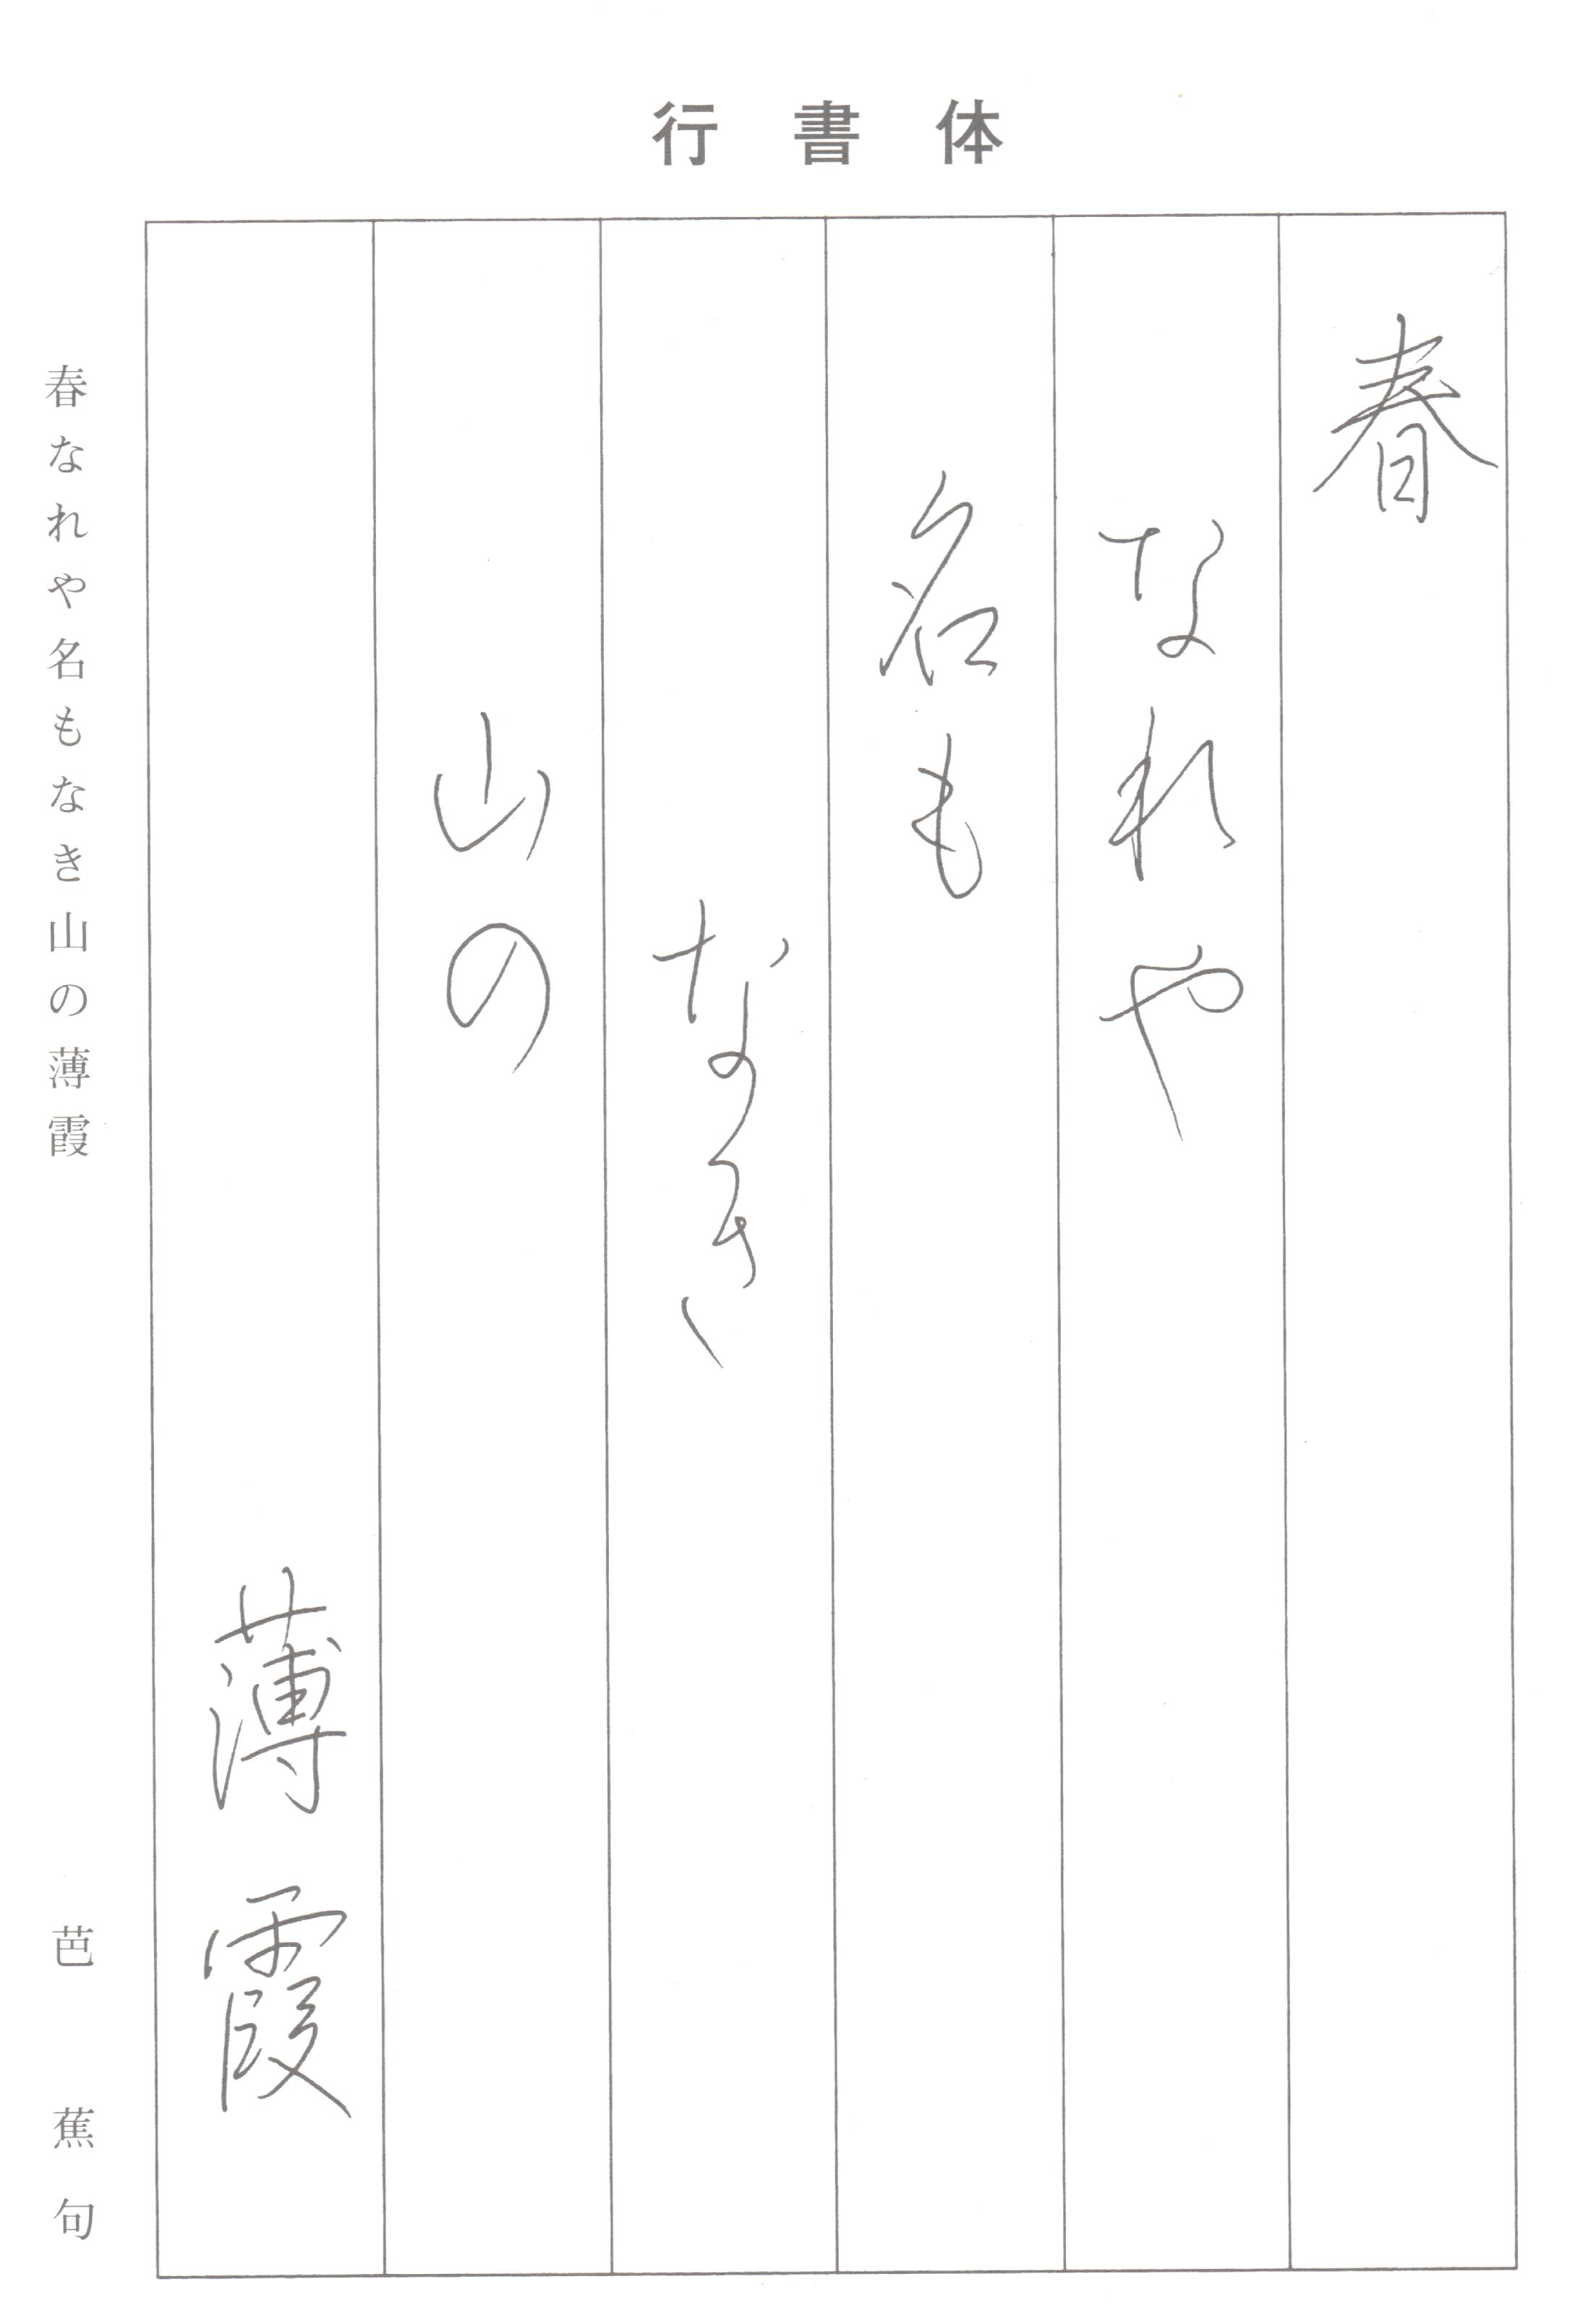 行書体
春
なれや
名も
なき
山の
薄霞
春なれや名もなき山の薄霞 芭蕉句